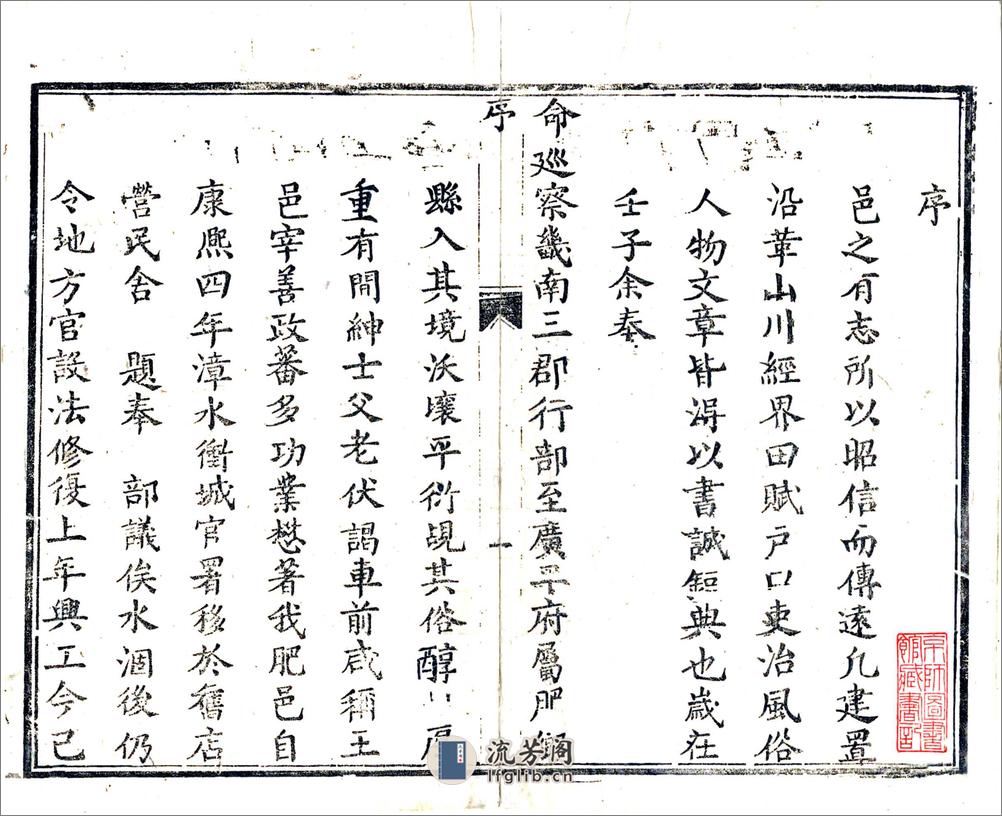 序
邑之有志所以昭信而傳遠凡建置
沿革山川經界田賦戶口吏治風俗
人物文章皆得以書誠鉅典也歲在
壬子余奉
命廵察畿南三郡行部至廣平府屬肥鄉
序
一
縣入其境沃壤平衍覘其俗醇厚
重有間紳士父老伏謁車前咸稱王
邑宰善政蕃多功業懋著我肥邑自
康熈四年漳水衝城官署移於舊店
營民舍 題奉 部議俟水涸後仍
令地方官設法修復上年興工今已
京師圖書
館藏書記
流芳閣
lfglib.cn